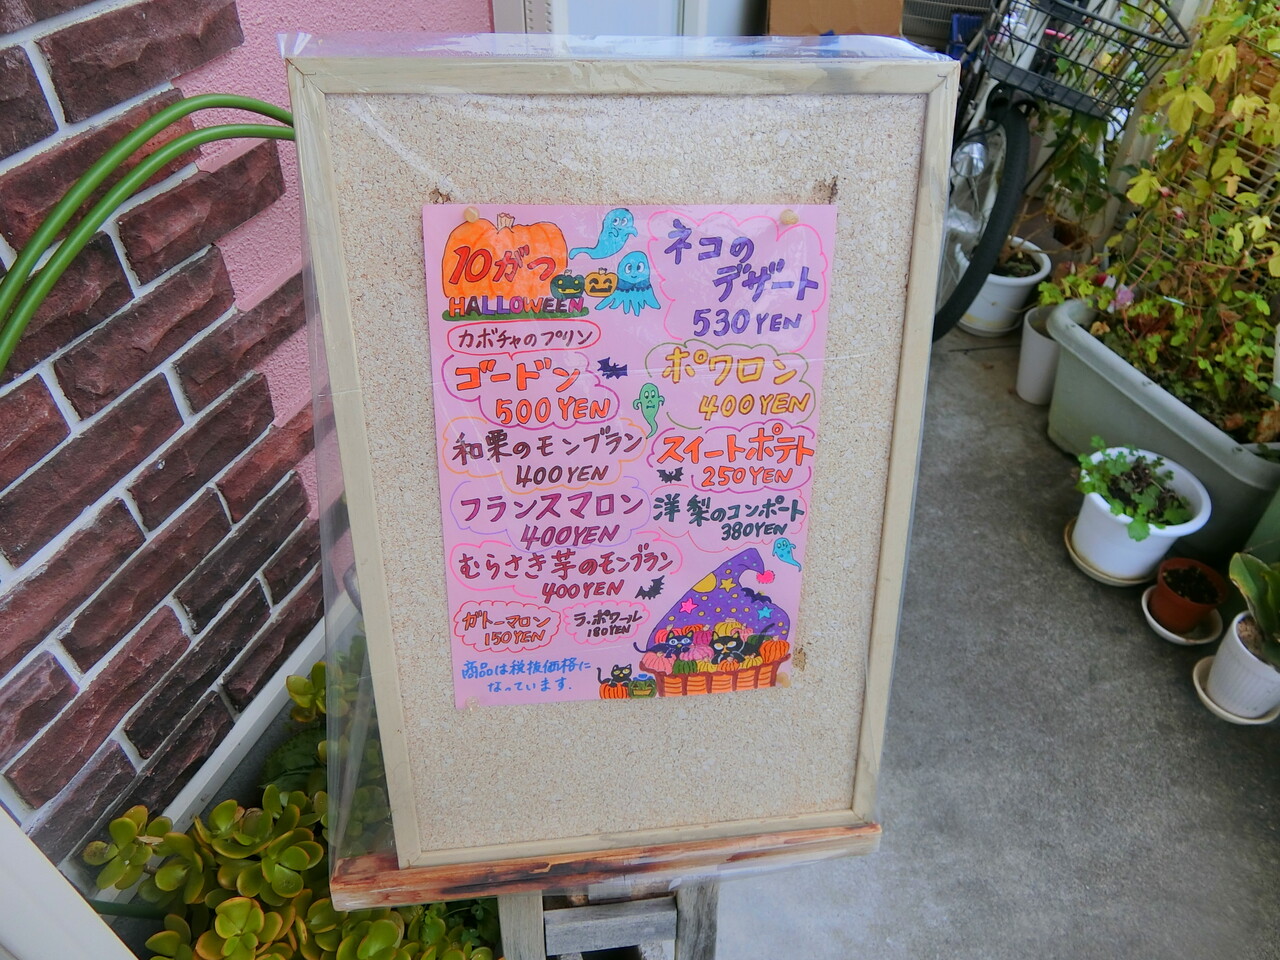 10がつ
HALLOWEEN
カボチャのプリン
ゴードン
500YEN
和栗のモンブラン
400YEN
フランスマロン
400YEN
むらさき芋のモンブラン
400YEN
ガトーマロン
150YEN
ラ・ポワール
180YEN
商品は税抜価格に
なっています.
ネコの
デザート
530YEN
ポワロン
400YEN
スイートポテト
250YEN
洋梨のコンポート
380YEN